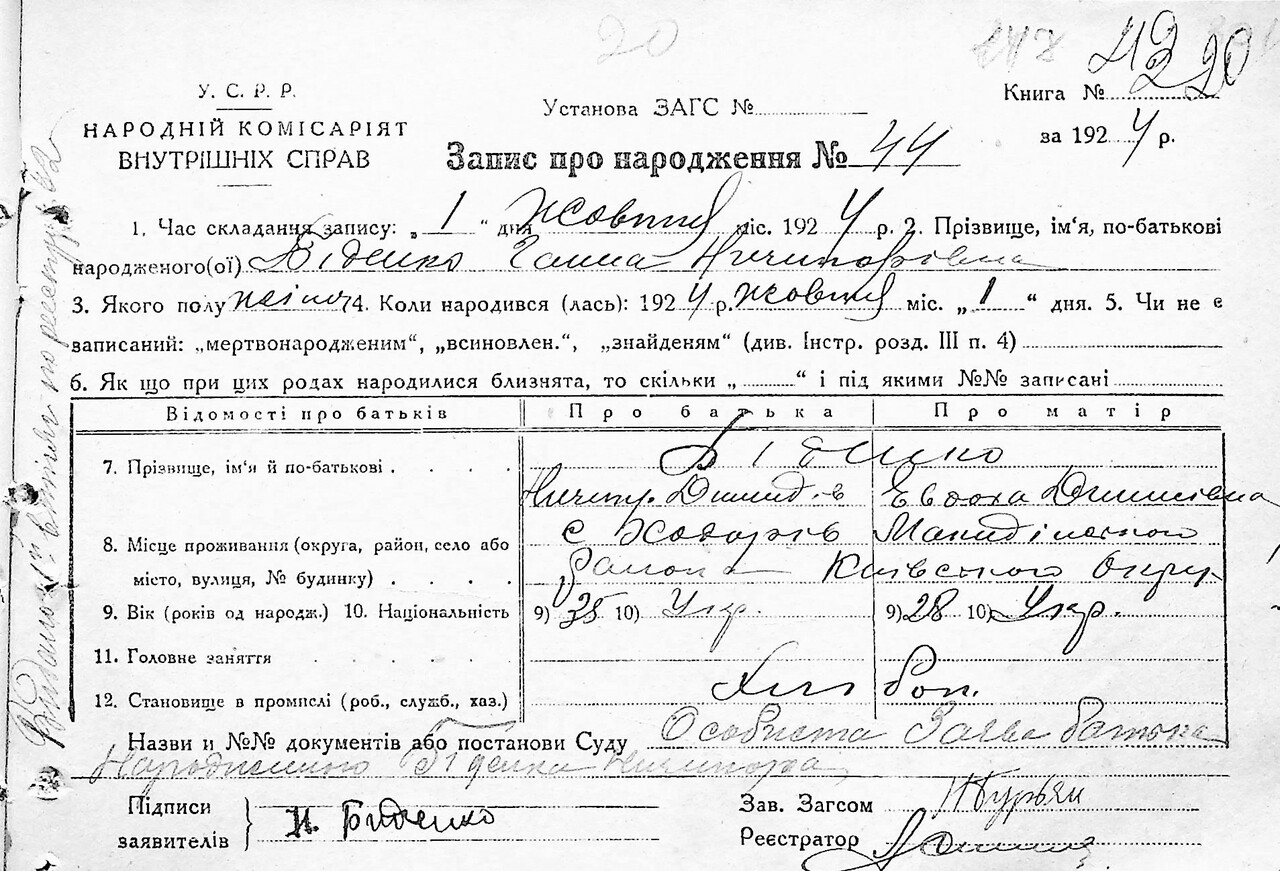 20
У. С. Р. Р.
НАРОДНІЙ КОМІСАРІЯТ
ВНУТРІШНІХ СПРАВ
Установа ЗАГС №
Книга № 20
за 1924 р.
Запис про народження № 44
1. Час складання запису: „ 1 “ дня жовтня міс. 1924 р. 2. Прізвище, ім'я, по-батькові
народженого(ої) Біденко Ганна Ничипорівна
3. Якого полу жіноч 4. Коли народився (лась): 1924 р. жовтня міс. „ 1 “ дня. 5. Чи не є
записаний: „мертвонародженим“, „всиновлен.“, „знайденям“ (див. Інстр. розд. III п. 4)
6. Як що при цих родах народилися близнята, то скільки „ “ і під якими №№ записані
Відомості про батьків Про батька Про матір
7. Прізвище, ім'я й по-батькові . . . . Біденко
Ничипр. Евдоха
8. Місце проживання (округа, район, село або с Ходорів
місто, вулиця, № будинку) . . . . Району Київського Округ
9. Вік (років од народж.) 10. Національність 9) 35 10) Укр. 9) 28 10) Укр.
11. Головне заняття . . . . .
12. Становище в промислі (роб., служб., хаз.) Хлі боп.
Назви и №№ документів або постанови Суду Особиста Заява батька
Народженого Біденка Ничипора
Підписи
заявителів Н. Биденко
Зав. Загсом
Реєстратор